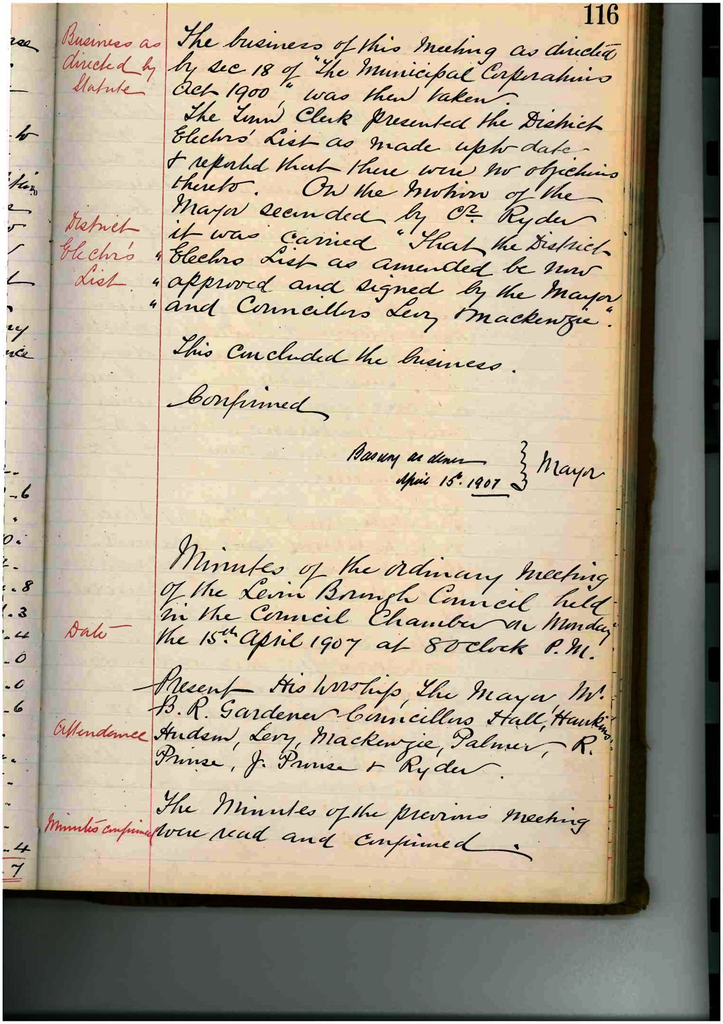 116
Business as
directed by
Statute
The business of this Meeting as directed
by sec 18 of "The Municipal Corporations
Act 1900," was then taken.
The Town Clerk presented the District
Electors' List as made up to date
& reported that there were no objections
thereto. On the Motion of the
Mayor seconded by Cr. Ryder
District
Electors
List
it was carried "That the District
" Electors List as amended be now
" approved and signed by the Mayor
" and Councillors Levy & Mackenzie".
This concluded the business.
Confirmed
Mayor
April 15th 1907
Minutes of the ordinary Meeting
of the Levin Borough Council held
in the Council Chamber on Monday
Date
the 15th April 1907 at 8 O'clock P.M.
Present His Worship, The Mayor, Mr.
B. R. Gardener Councillors Hall, Hankins
Attendance
Hudson, Levy, Mackenzie, Palmer, R.
Prouse, J. Prouse & Ryder.
The Minutes of the previous Meeting
Minutes confirmed
were read and confirmed.